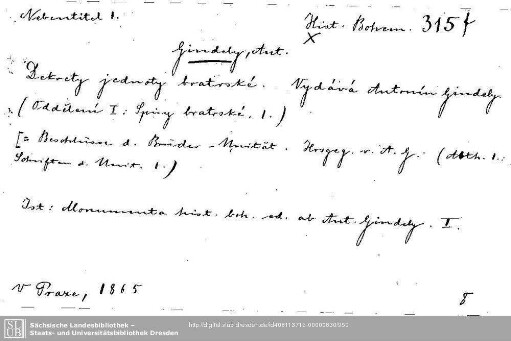 Nebentitel 1.
Hist. Bohem. 315 f
X
Gindely, Ant.
Dekrety jednoty bratrské. Vydává Antonín Gindely.
(Oddělení I: Spisy bratrské. 1.)
[= Beschlüsse d. Brüder-Unität. Hrsgeg. v. A. G. (Abth. 1.
Schriften d. Unit. 1.)
Ist: Monumenta hist. boh. ed. ab Ant. Gindely. I.
V Praze, 1865
8
Sächsische Landesbibliothek –
Staats- und Universitätsbibliothek Dresden